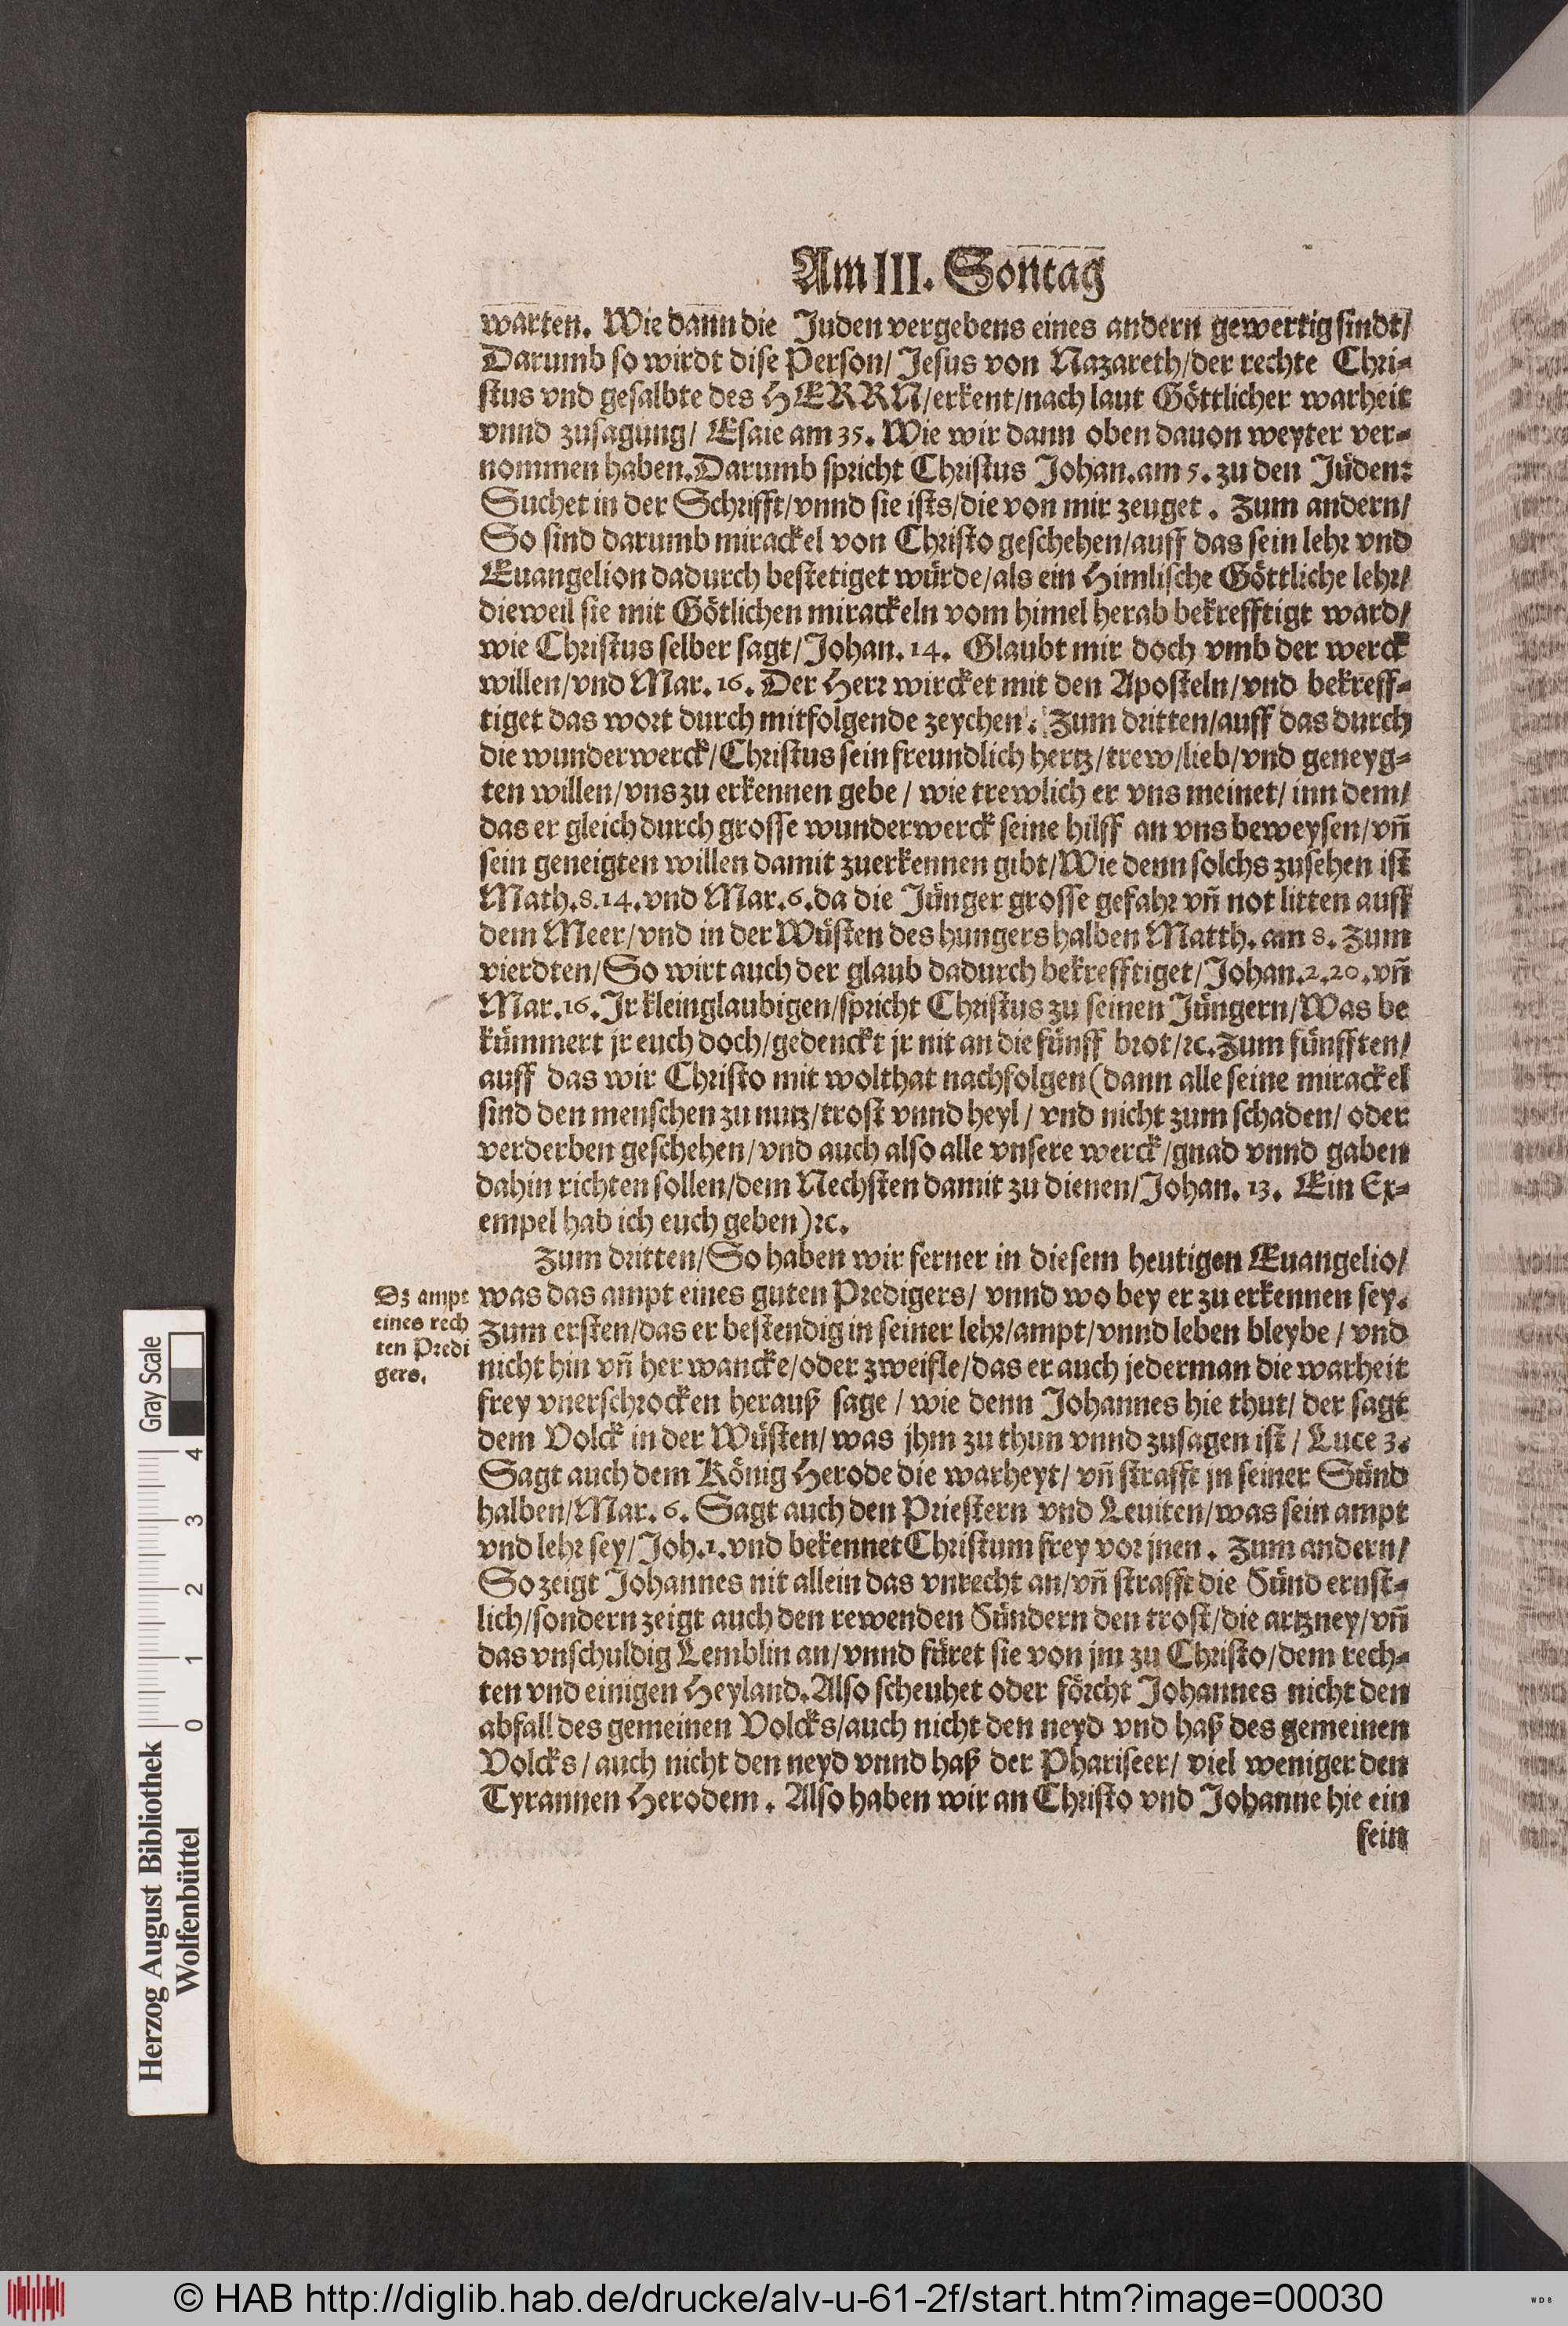 Am III. Sontag
warten. Wie dann die Juden vergebens eines andern gewertig sindt/
Darumb so wirdt dise Person/ Jesus von Nazareth/der rechte Chri⸗
stus vnd gesalbte des HERRN/erkent/nach laut Göttlicher warheit
vnnd zusagung/ Esaie am 35. Wie wir dann oben dauon weyter ver⸗
nommen haben. Darumb spricht Christus Johan. am 5. zu den Jüden:
Suchet in der Schrifft/vnnd sie ists/die von mir zeuget. Zum andern/
So sind darumb mirackel von Christo geschehen/auff das sein lehr vnd
Euangelion dadurch bestetiget würde/als ein Himlische Göttliche lehr/
dieweil sie mit Götlichen mirackeln vom himel herab bekrefftigt ward/
wie Christus selber sagt/Johan. 14. Glaubt mir doch vmb der werck
willen/vnd Mar. 16. Der Herr wircket mit den Aposteln/vnd bekreff⸗
tiget das wort durch mitfolgende zeychen. Zum dritten/auff das durch
die wunderwerck/Christus sein freundlich hertz/trew/lieb/vnd geneyg⸗
ten willen/vns zu erkennen gebe / wie trewlich er vns meinet/ inn dem/
das er gleich durch grosse wunderwerck seine hilff an vns beweysen/vñ
sein geneigten willen damit zuerkennen gibt/Wie denn solchs zusehen ist
Math. 8. 14. vnd Mar. 6. da die Jünger grosse gefahr vñ not litten auff
dem Meer/vnd in der Wüsten des hungers halben Matth. am 8. Zum
vierdten/So wirt auch der glaub dadurch bekrefftiget/Johan. 2. 20. vñ
Mar. 16. Jr kleinglaubigen/spricht Christus zu seinen Jüngern/Was be
kümmert jr euch doch/gedenckt jr nit an die fünff brot/ꝛc. Zum fünfften/
auff das wir Christo mit wolthat nachfolgen (dann alle seine mirackel
sind den menschen zu nutz/trost vnnd heyl / vnd nicht zum schaden/ oder
verderben geschehen/vnd auch also alle vnsere werck/gnad vnnd gaben
dahin richten sollen/dem Nechsten damit zu dienen/Johan. 13. Ein Ex⸗
empel hab ich euch geben)ꝛc.
Zum dritten/So haben wir ferner in diesem heutigen Euangelio/
Dz ampt
eines rech
ten Predi
gers.
was das ampt eines guten Predigers/ vnnd wo bey er zu erkennen sey.
Zum ersten/das er bestendig in seiner lehr/ampt/vnnd leben bleybe / vnd
nicht hin vñ her wancke/oder zweifle/das er auch jederman die warheit
frey vnerschrocken herauß sage / wie denn Johannes hie thut/ der sagt
dem Volck in der Wüsten/ was jhm zu thun vnnd zusagen ist / Luce 3.
Sagt auch dem König Herode die warheyt/ vñ strafft jn seiner Sünd
halben/Mar. 6. Sagt auch den Priestern vnd Leuiten/was sein ampt
vnd lehr sey/Joh. 1. vnd bekennet Christum frey vor jnen. Zum andern/
So zeigt Johannes nit allein das vnrecht an/vñ strafft die Sünd ernst⸗
lich/sondern zeigt auch den rewenden Sündern den trost/die artzney/vñ
das vnschuldig Lemblin an/vnnd füret sie von jm zu Christo/dem rech⸗
ten vnd einigen Heyland. Also scheuhet oder förcht Johannes nicht den
abfall des gemeinen Volcks/auch nicht den neyd vnd haß des gemeinen
Volcks / auch nicht den neyd vnnd haß der Phariseer/ viel weniger den
Tyrannen Herodem. Also haben wir an Christo vnd Johanne hie ein
fein
Herzog August Bibliothek
Wolfenbüttel
0 1 2 3 4
Gray Scale
© HAB http://diglib.hab.de/drucke/alv-u-61-2f/start.htm?image=00030
WDB